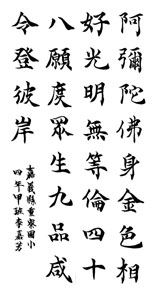 阿彌陀佛身金色相
好光明無等倫四十
八願度眾生九品咸
令登彼岸
嘉義縣重寮國小
四年甲班李嘉芳